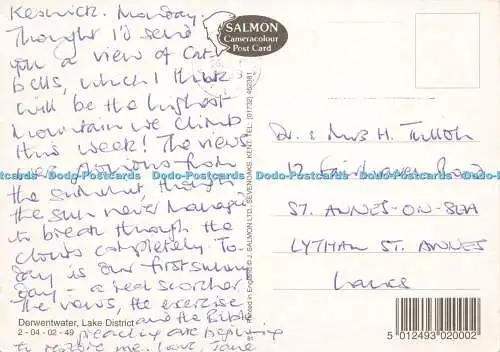 Keswick. Monday
Thought I'd send
you a view of Cat
bells, which I think
will be the highest
mountain we climb
this week! The views
were glorious from
the summit, though
the sun never managed
to break through the
clouds completely. To-
day is our first sunny
day - a real scorcher
The views, the exercise
and the Bible
preaching are beginning
to restore me. Love, Jane
Derwentwater, Lake District
2 - 04 - 02 - 49
SALMON
Cameracolour
Post Card
Printed in England © J. SALMON LTD., SEVENOAKS, KENT. TEL: (01732) 452381
Dr. & Mrs H. Tulloh
12 Fairhaven Road
ST. ANNES-ON-SEA
LYTHAM ST. ANNES
Lancs
5 012493 020002
Dodo-Postcards Dodo-Postcards Dodo-Postcards Dodo-Postcards